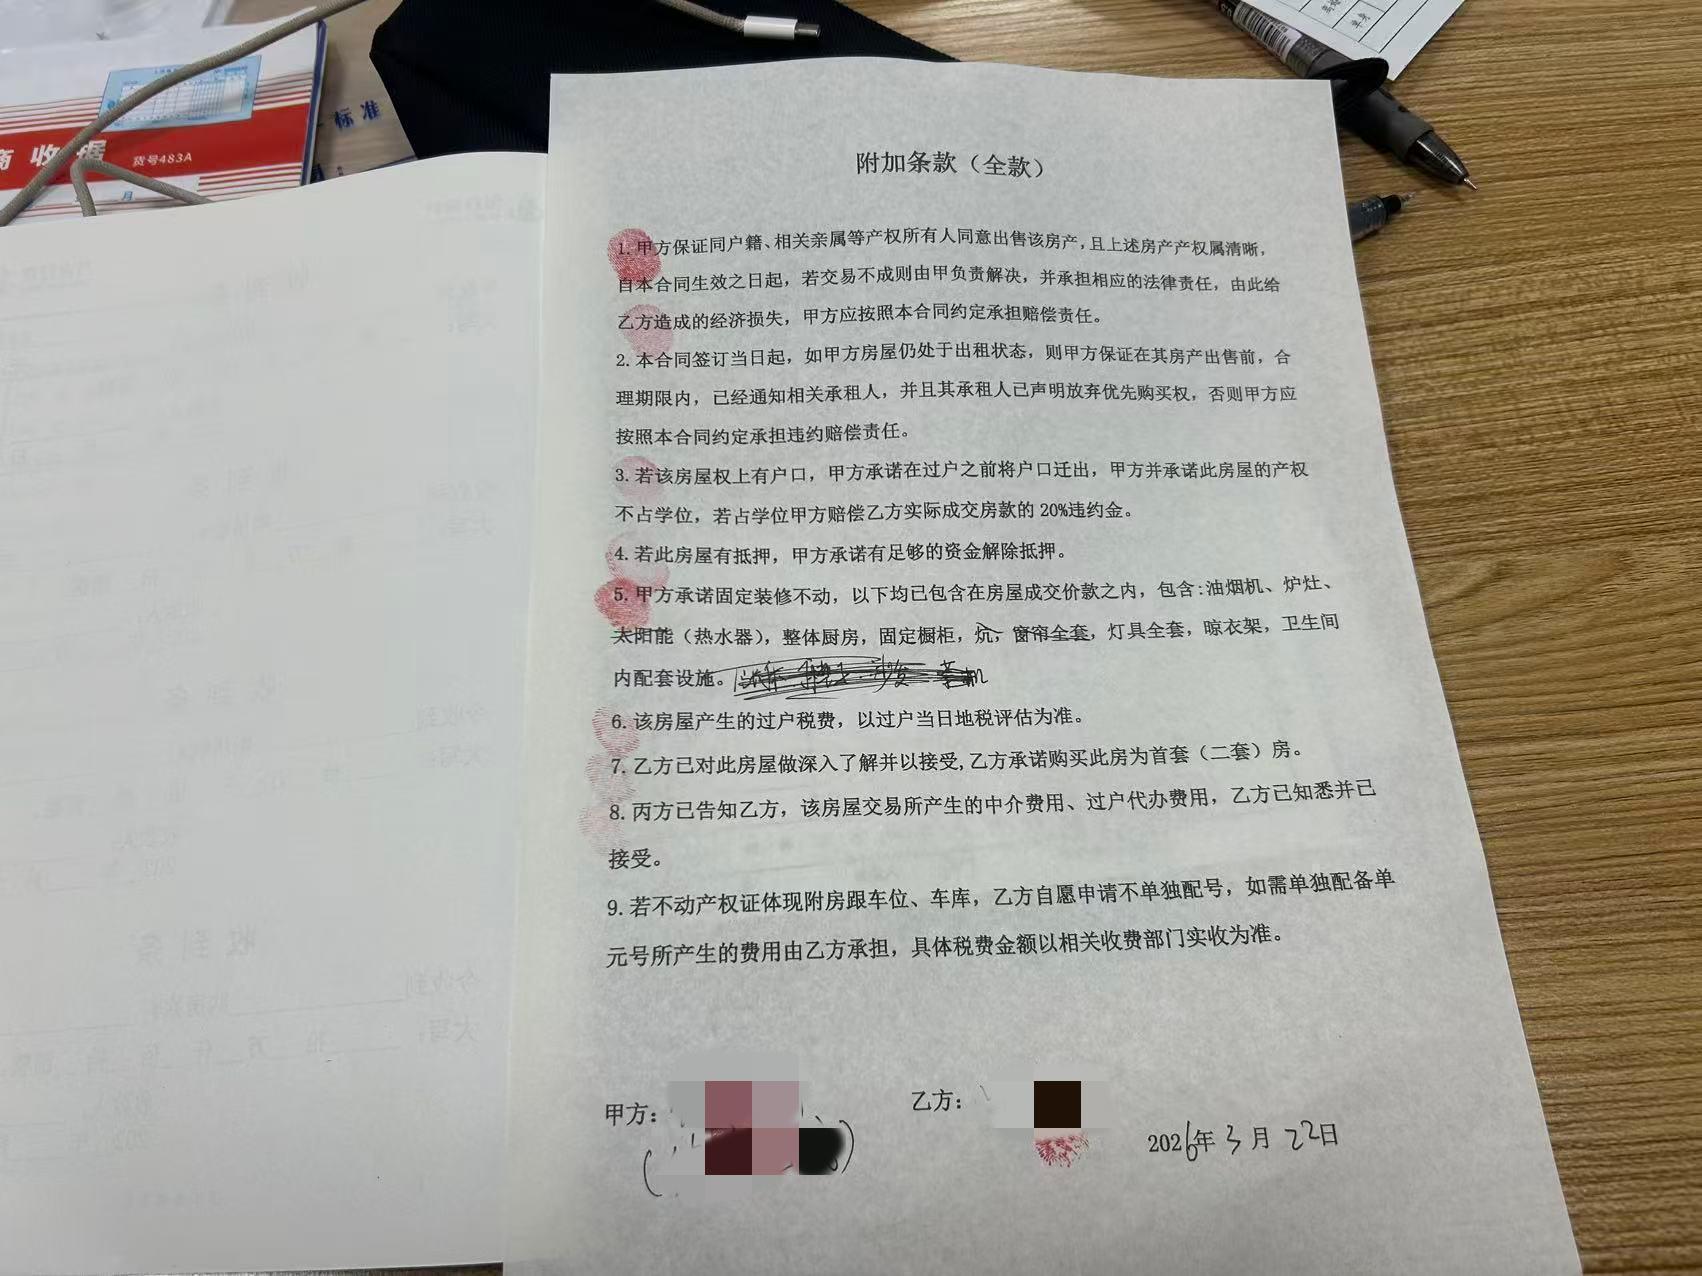 商 收据
货号483A
月
标准
附加条款（全款）
1.甲方保证同户籍、相关亲属等产权所有人同意出售该房产,且上述房产产权属清晰，
自本合同生效之日起，若交易不成则由甲负责解决，并承担相应的法律责任，由此给
乙方造成的经济损失，甲方应按照本合同约定承担赔偿责任。
2.本合同签订当日起，如甲方房屋仍处于出租状态，则甲方保证在其房产出售前，合
理期限内，已经通知相关承租人，并且其承租人已声明放弃优先购买权，否则甲方应
按照本合同约定承担违约赔偿责任。
3.若该房屋权上有户口，甲方承诺在过户之前将户口迁出，甲方并承诺此房屋的产权
不占学位，若占学位甲方赔偿乙方实际成交房款的20%违约金。
4.若此房屋有抵押，甲方承诺有足够的资金解除抵押。
5.甲方承诺固定装修不动，以下均已包含在房屋成交价款之内，包含:油烟机、炉灶、
太阳能（热水器），整体厨房，固定橱柜，炕，窗帘全套，灯具全套，晾衣架，卫生间
内配套设施。
6.该房屋产生的过户税费，以过户当日地税评估为准。
7.乙方已对此房屋做深入了解并以接受,乙方承诺购买此房为首套（二套）房。
8.丙方已告知乙方，该房屋交易所产生的中介费用、过户代办费用，乙方已知悉并已
接受。
9.若不动产权证体现附房跟车位、车库，乙方自愿申请不单独配号，如需单独配备单
元号所产生的费用由乙方承担，具体税费金额以相关收费部门实收为准。
甲方：
乙方：
2026年3月22日